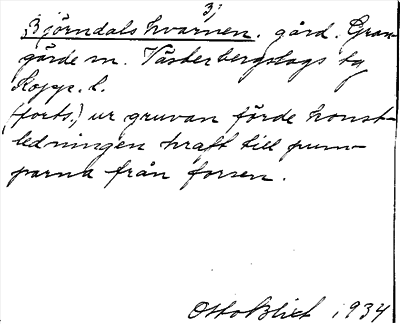 3)
Björndalskvarnen. gård. Gran-
gärde sn. Västerbergslags tg
Kopp. l.
(forts.) ur gruvan förde konst-
ledningen kraft till pum-
parna från forsen.
Otto Blixt 1934